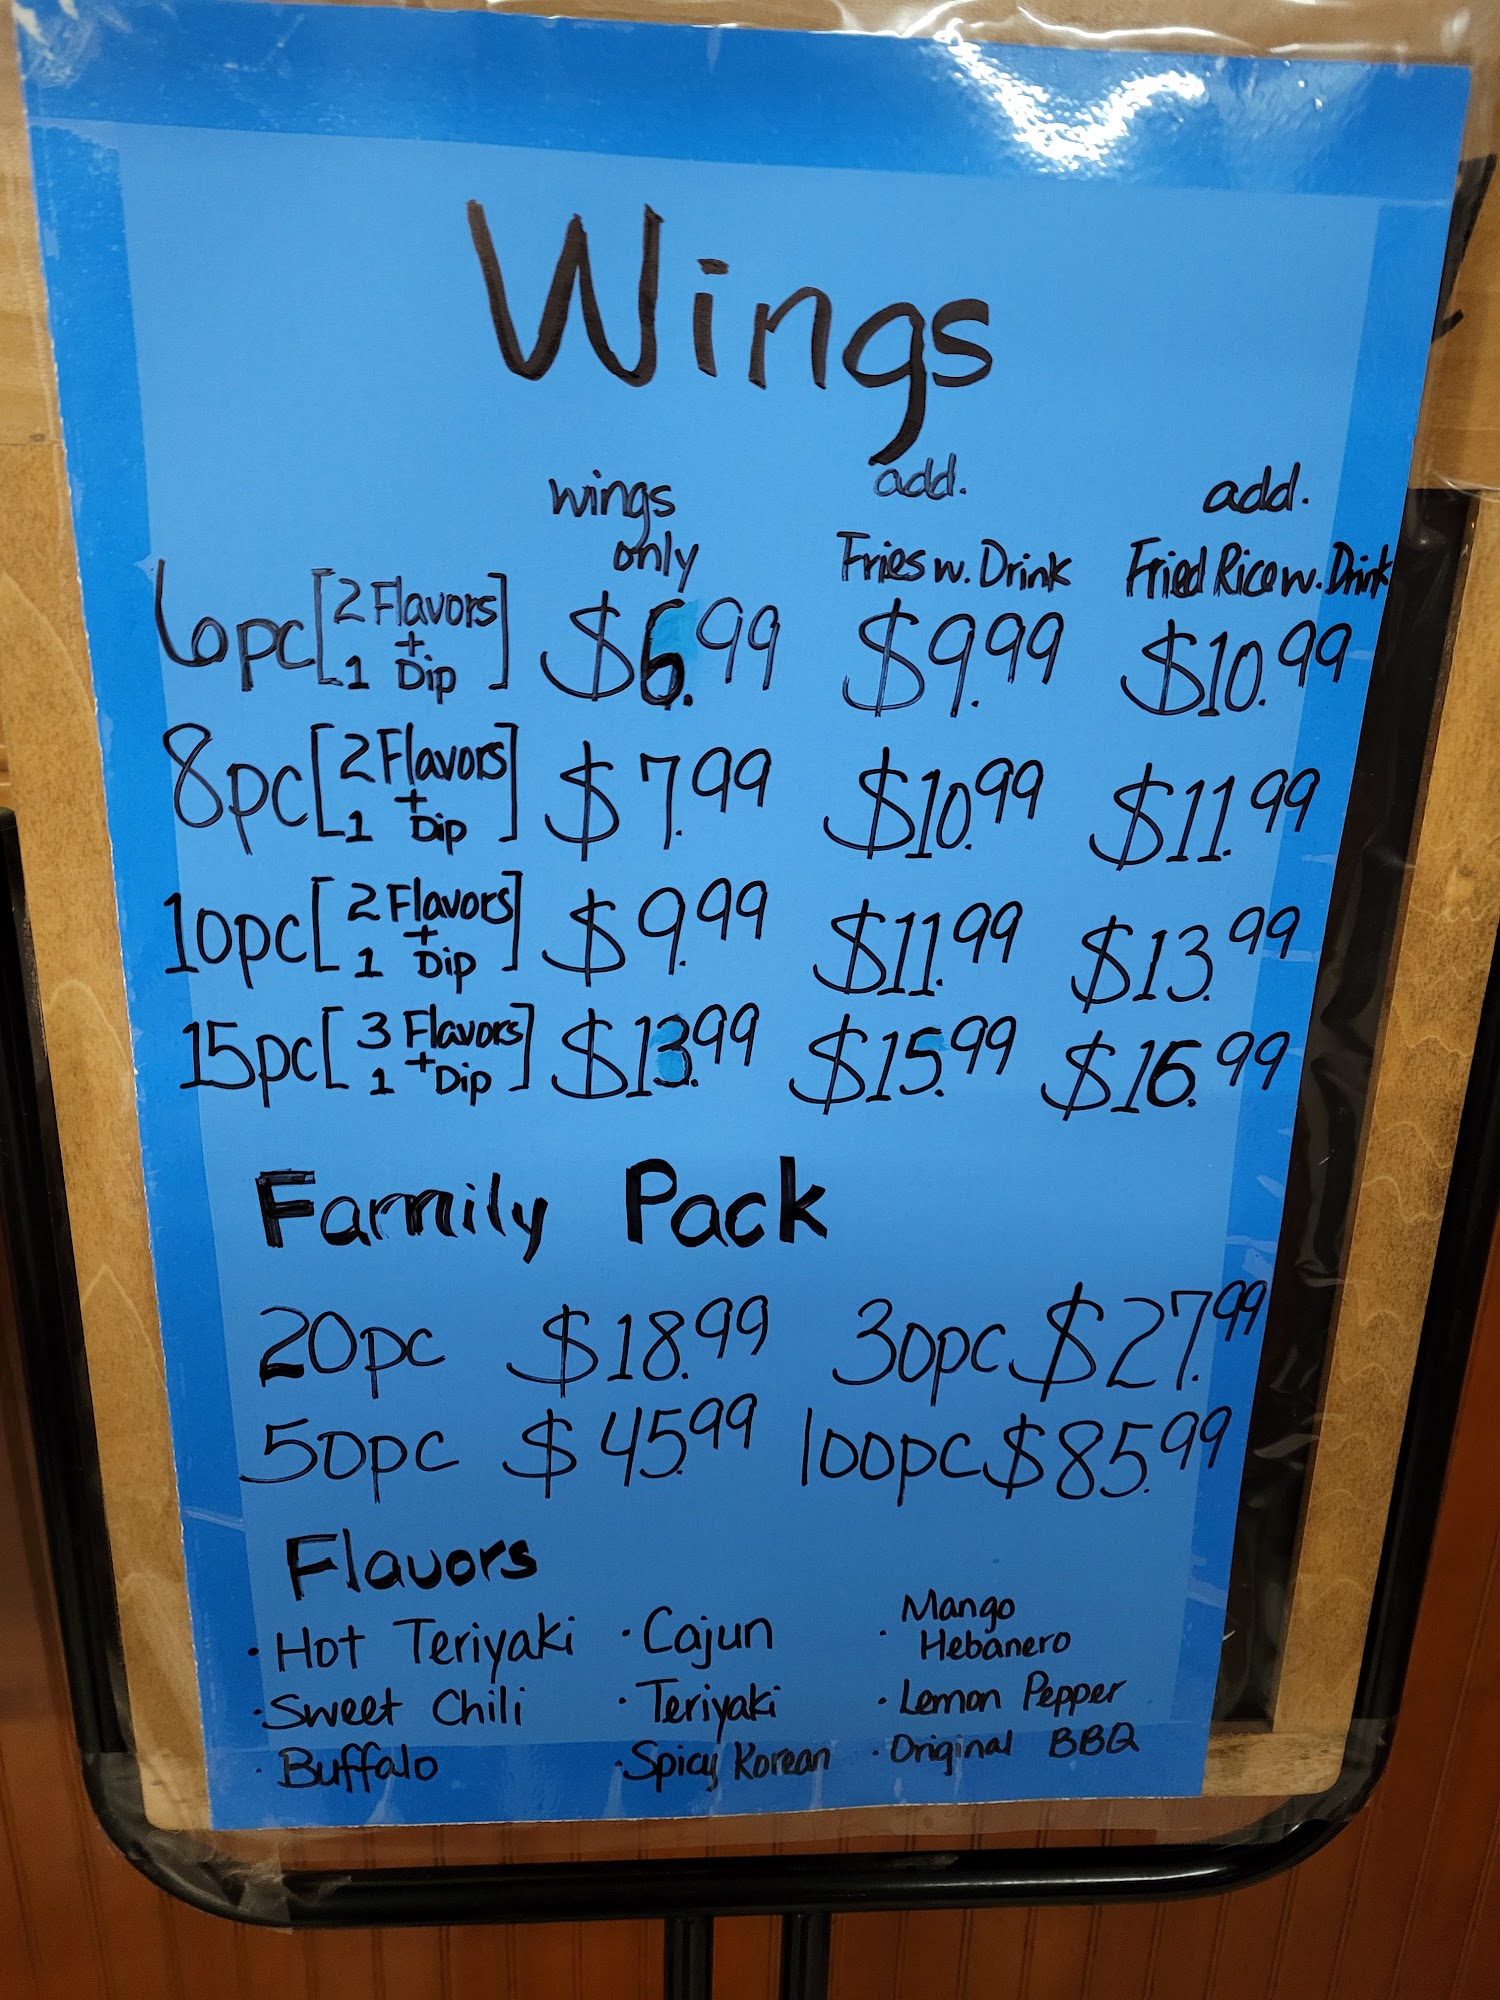 Wings
wings only
add. Fries w. Drink
add. Fried Rice w. Drink
6pc [2 Flavors + 1 Dip] $6.99 $9.99 $10.99
8pc [2 Flavors + 1 Dip] $7.99 $10.99 $11.99
10pc [2 Flavors + 1 Dip] $9.99 $11.99 $13.99
15pc [3 Flavors + 1 Dip] $13.99 $15.99 $16.99
Family Pack
20pc $18.99 30pc $27.99
50pc $45.99 100pc $85.99
Flavors
· Hot Teriyaki · Cajun · Mango Hebanero
· Sweet Chili · Teriyaki · Lemon Pepper
· Buffalo · Spicy Korean · Original BBQ